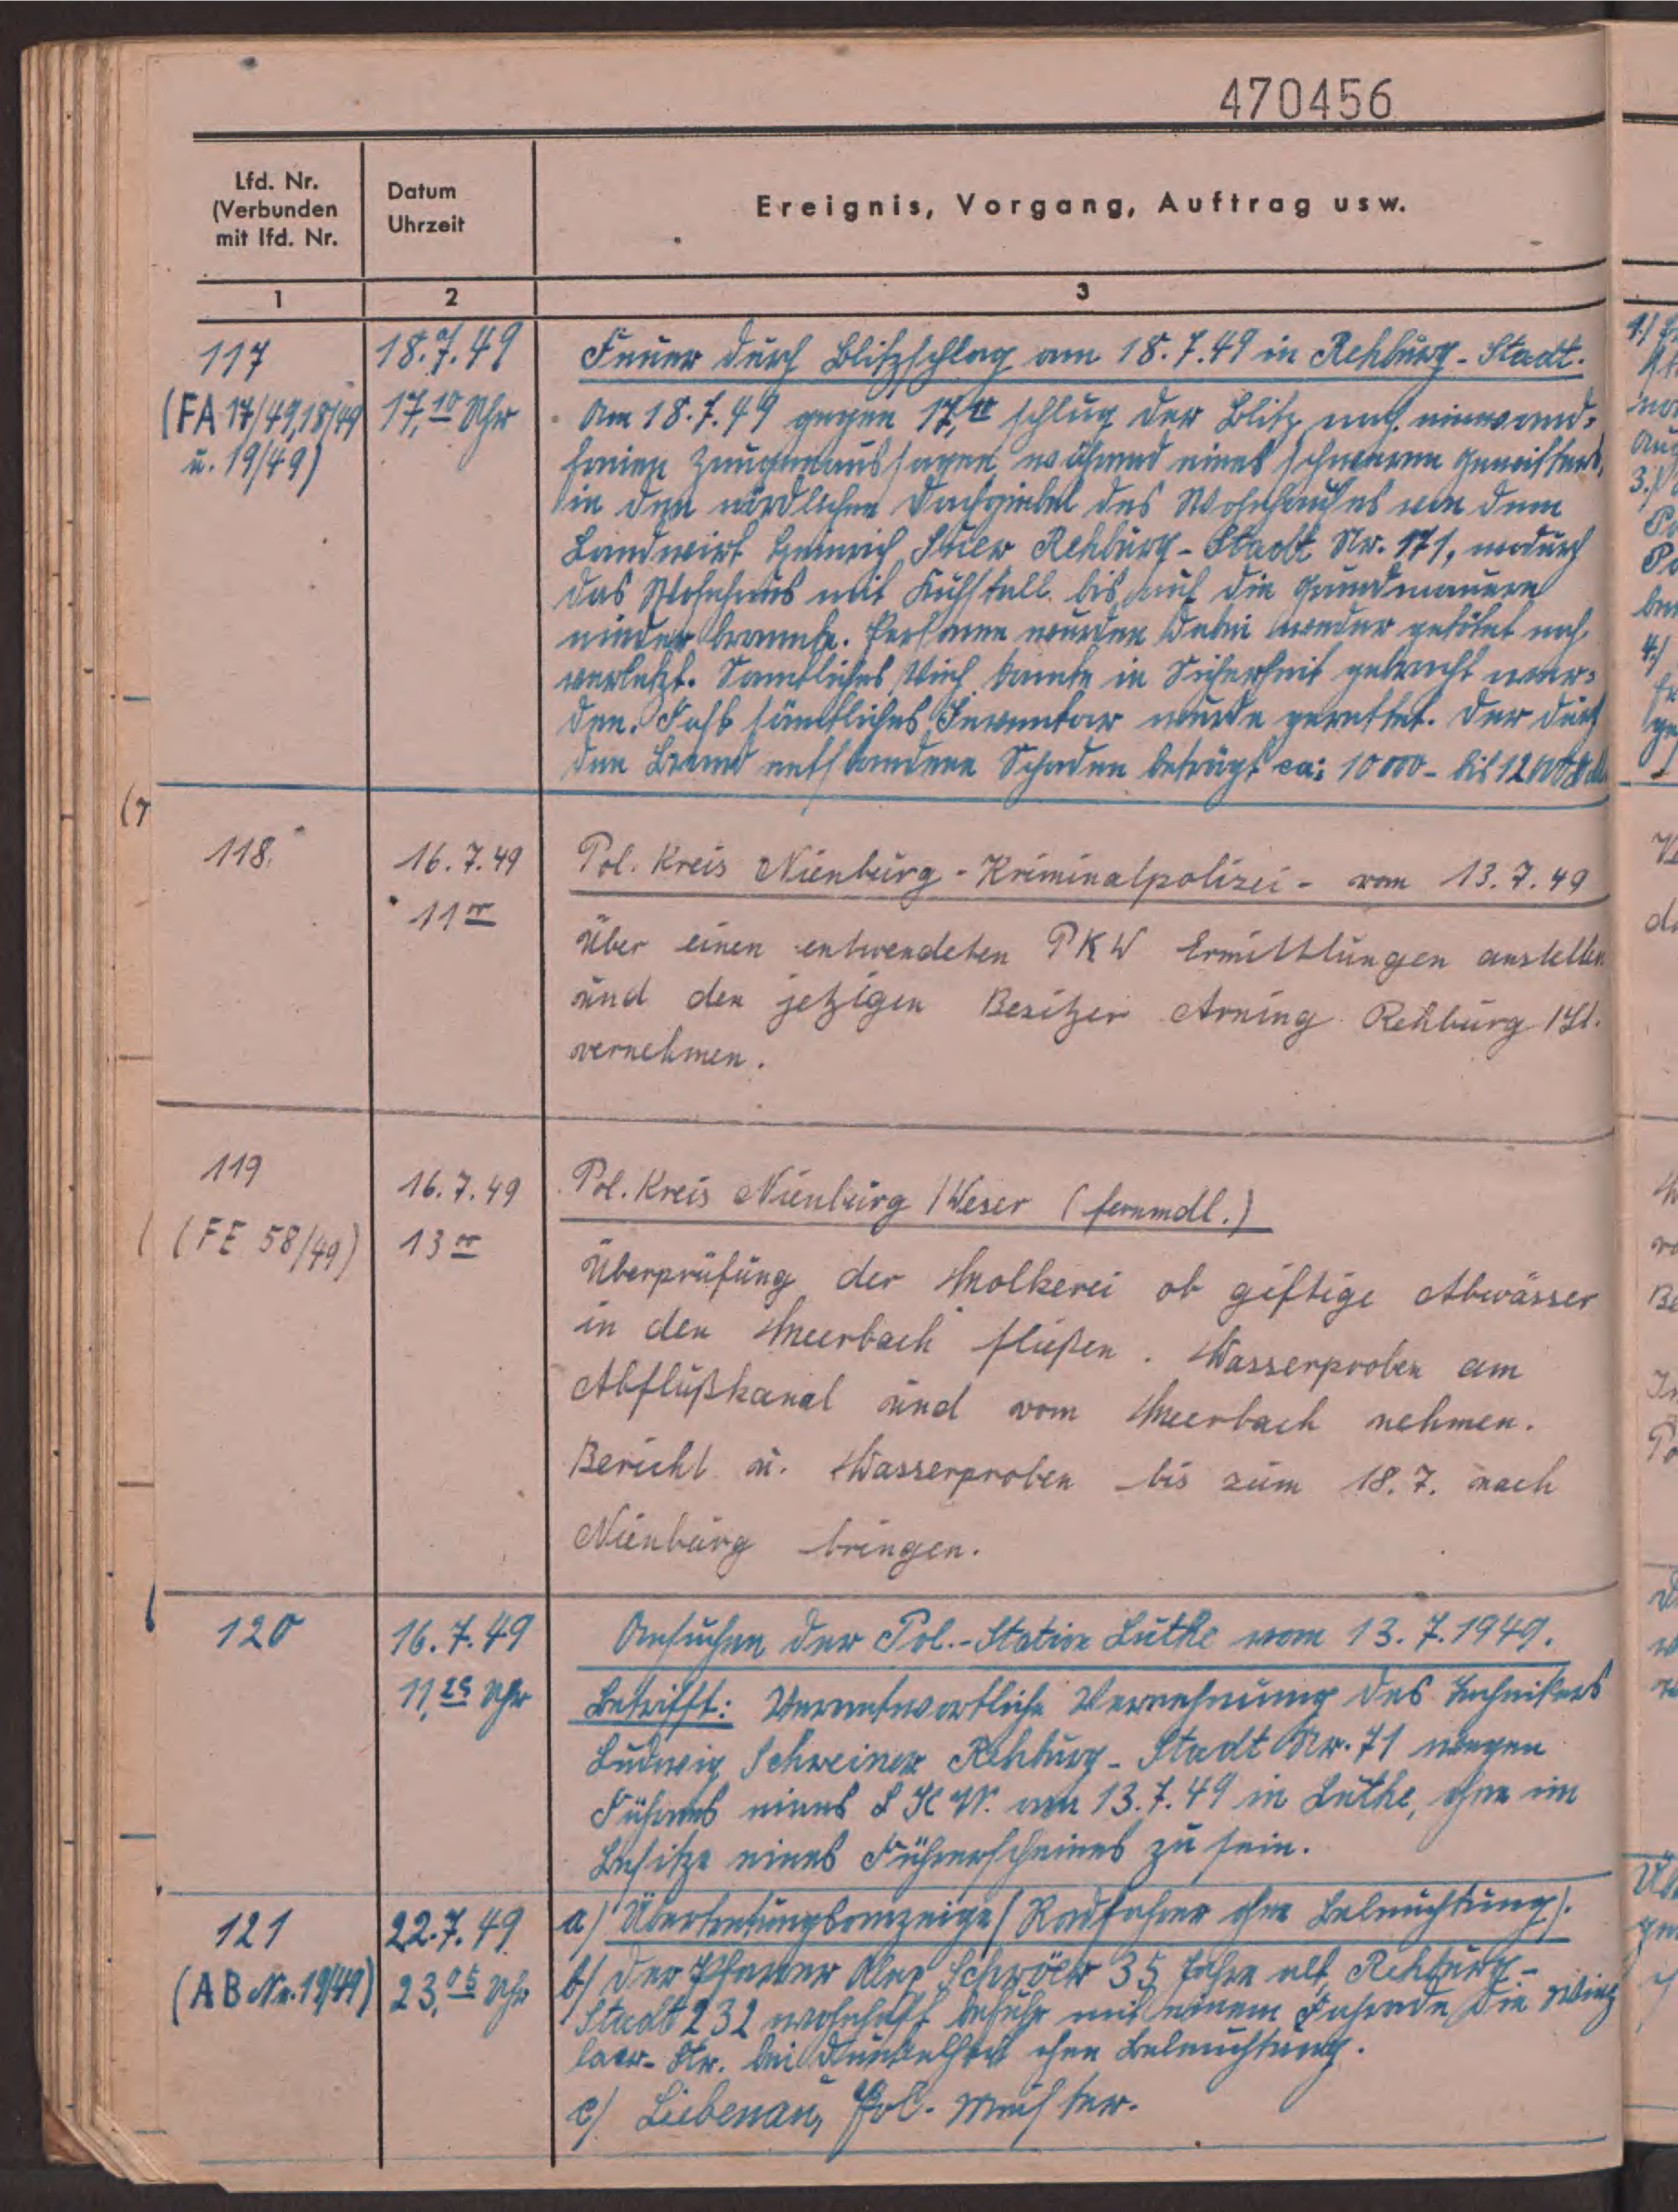 470456
Lfd. Nr.
(Verbunden
mit lfd. Nr.
Datum
Uhrzeit
Ereignis, Vorgang, Auftrag usw.
1
2
3
117
(FA 17/49, 18/49
u. 19/49)
18.7.49
17,10 Uhr
Feuer durch Blitzschlag am 18.7.49 in Rehburg-Stadt.
Am 18.7.49 gegen 17,10 schlug der Blitz nach einwand-
freien Zeugenaussagen während eines schweren Gewitters,
in den nördlichen Dachgiebel des Wohnhauses von dem
Landwirt Heinrich Suer Rehburg-Stadt Nr. 171, wodurch
das Wohnhaus mit Kuhstall bis auf die Grundmauern
nieder brannte. Personen wurden dabei weder getötet noch
verletzt. Samtliches Vieh konnte in Sicherheit gebracht wer-
den. Fast sämtliches Inventar wurde gerettet. Der durch
den Brand entstandene Schaden beträgt ca: 10 000 - bis 12 000
118.
16.7.49
11 00
Pol. Kreis Nienburg - Kriminalpolizei - vom 13.7.49
Über einen entwendeten PKW Ermittlungen anstellen
und den jetzigen Besitzer Arning Rehburg /St.
vernehmen.
119
(FE 58/49)
16.7.49
13 00
Pol. Kreis Nienburg /Weser (fernmdl.)
Überprüfung der Molkerei ob giftige Abwässer
in den Meerbach fließen. Wasserproben am
Abflußkanal und vom Meerbach nehmen.
Bericht u. Wasserproben bis zum 18.7. nach
Nienburg bringen.
120
16.7.49
11,25 Uhr
Ansuchen der Pol.-Station Luthe vom 13.7.1949.
Betrifft: Verantwortliche Vernehmung des Technikers
Ludwig Schreiner Rehburg-Stadt Nr. 71 wegen
Führens eines LKW. am 13.7.49 in Luthe, ohne im
Besitze eines Führerscheines zu sein.
121
(AB Nr. 19/49)
22.7.49
23,05 Uhr
a) Übertretungsanzeige (Radfahren ohne Beleuchtung).
b) Der 35 Jahre alt, Rehburg-
Stadt 232 wohnhaft befuhr mit einem Fahrrade die Winz
laer-Str. bei Dunkelheit ohne Beleuchtung.
c) Liebenau, Pol. Meister.